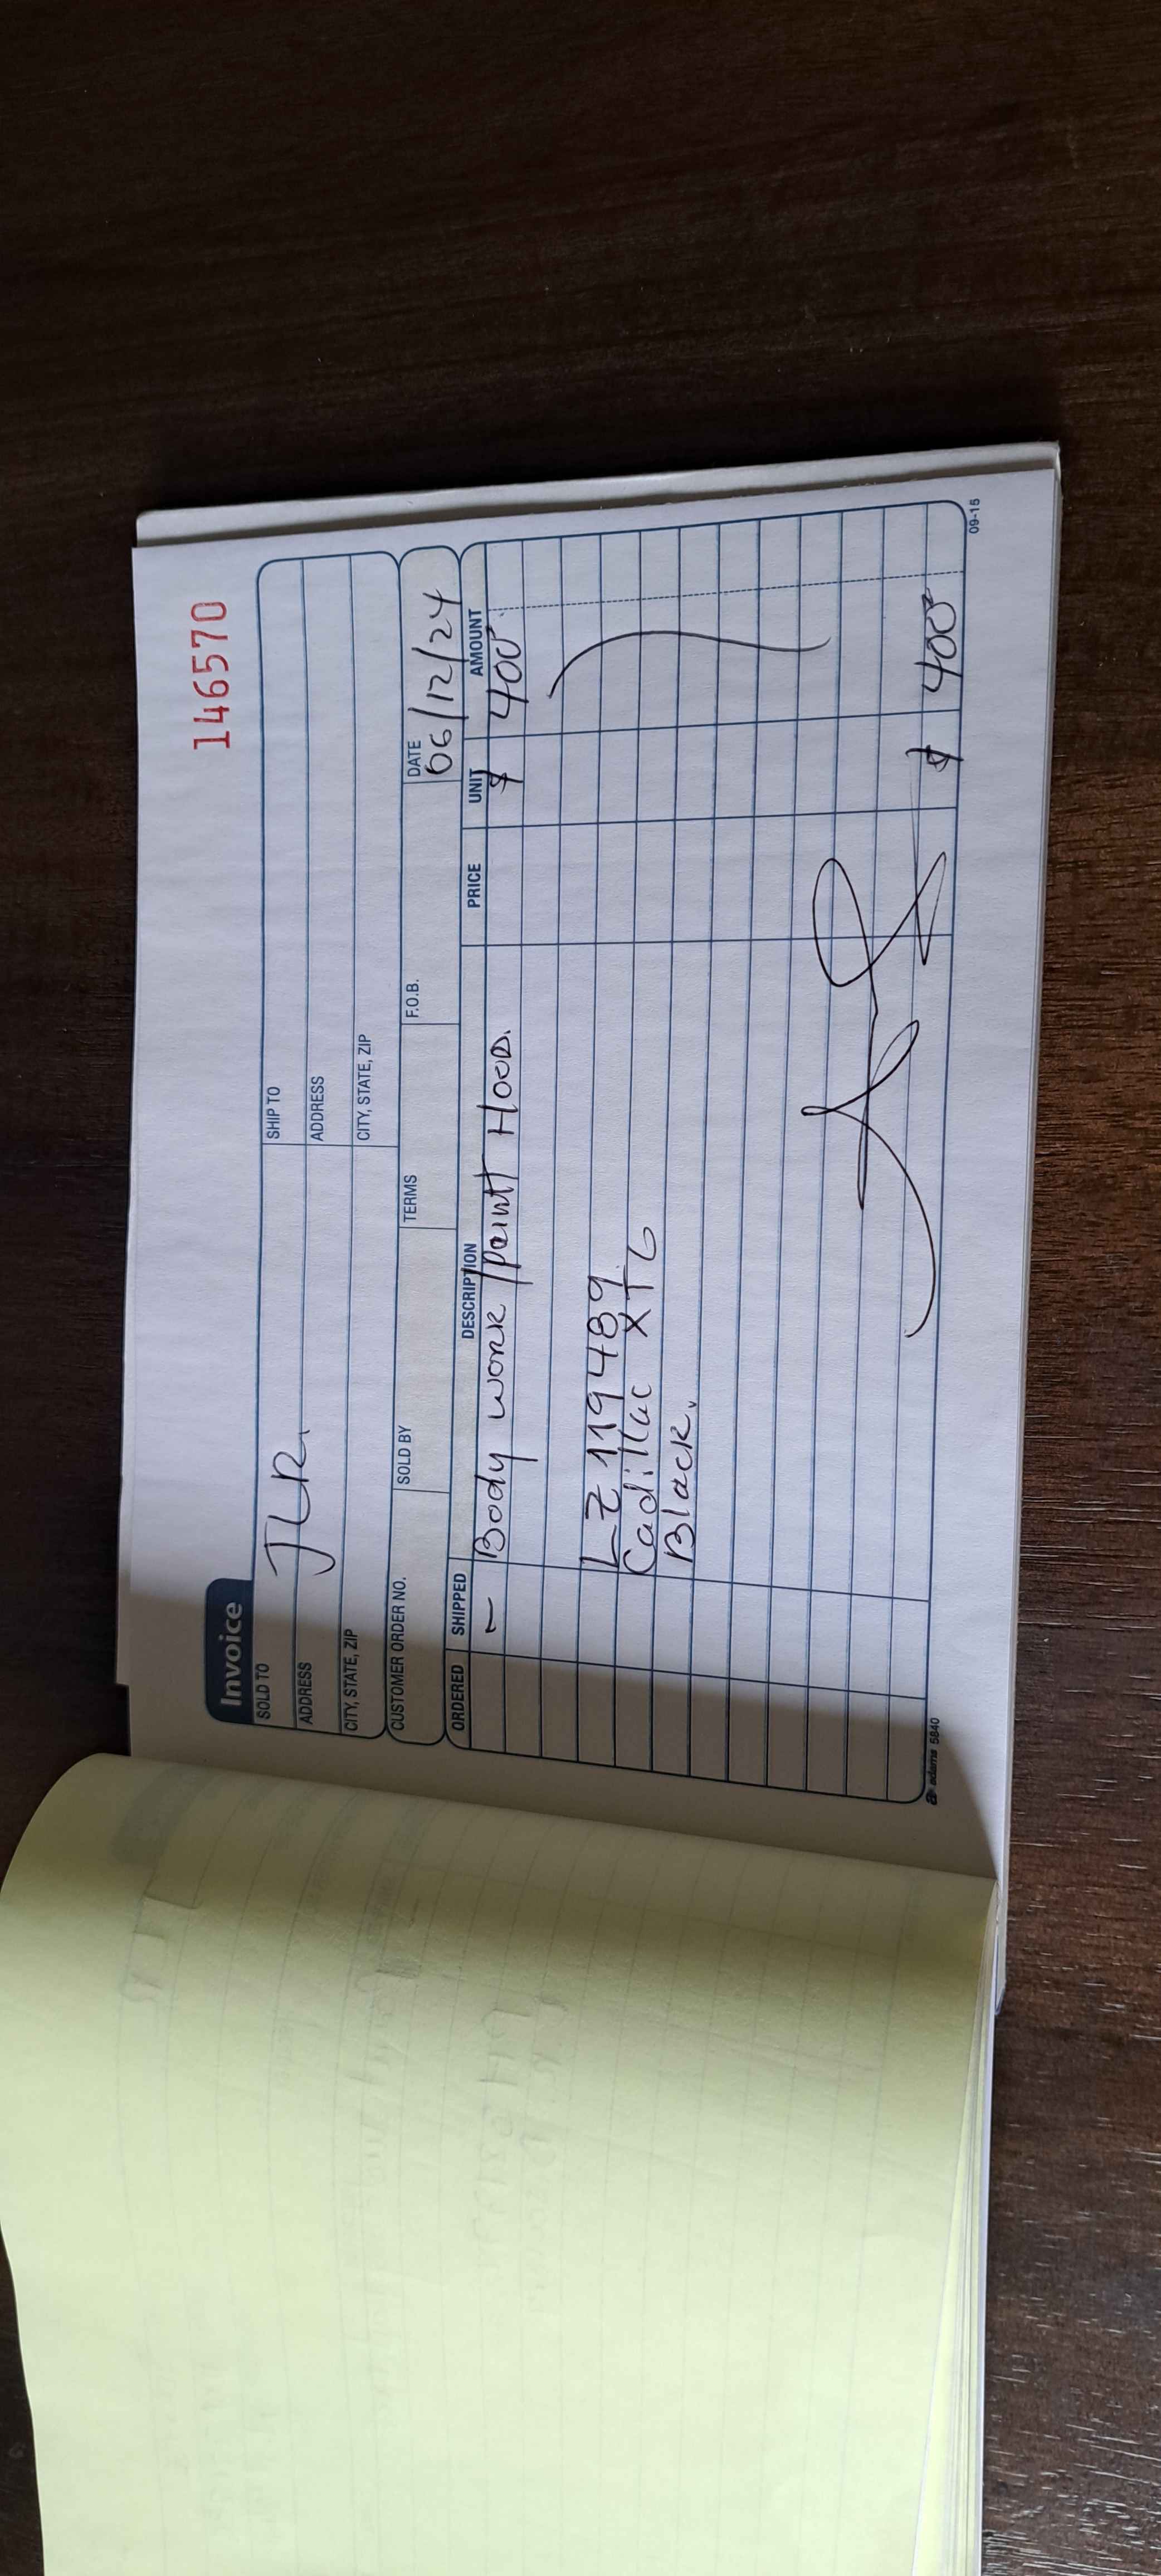 146570
Invoice
SOLD TO JLR. SHIP TO
ADDRESS ADDRESS
CITY, STATE, ZIP CITY, STATE, ZIP
CUSTOMER ORDER NO. SOLD BY TERMS F.O.B. DATE 06/12/24
ORDERED SHIPPED DESCRIPTION PRICE UNIT AMOUNT
— Body work/paint Hood. $ 400
LZ119489.
Cadillac XT6
Black.
$ 400
adams 5840 09-15